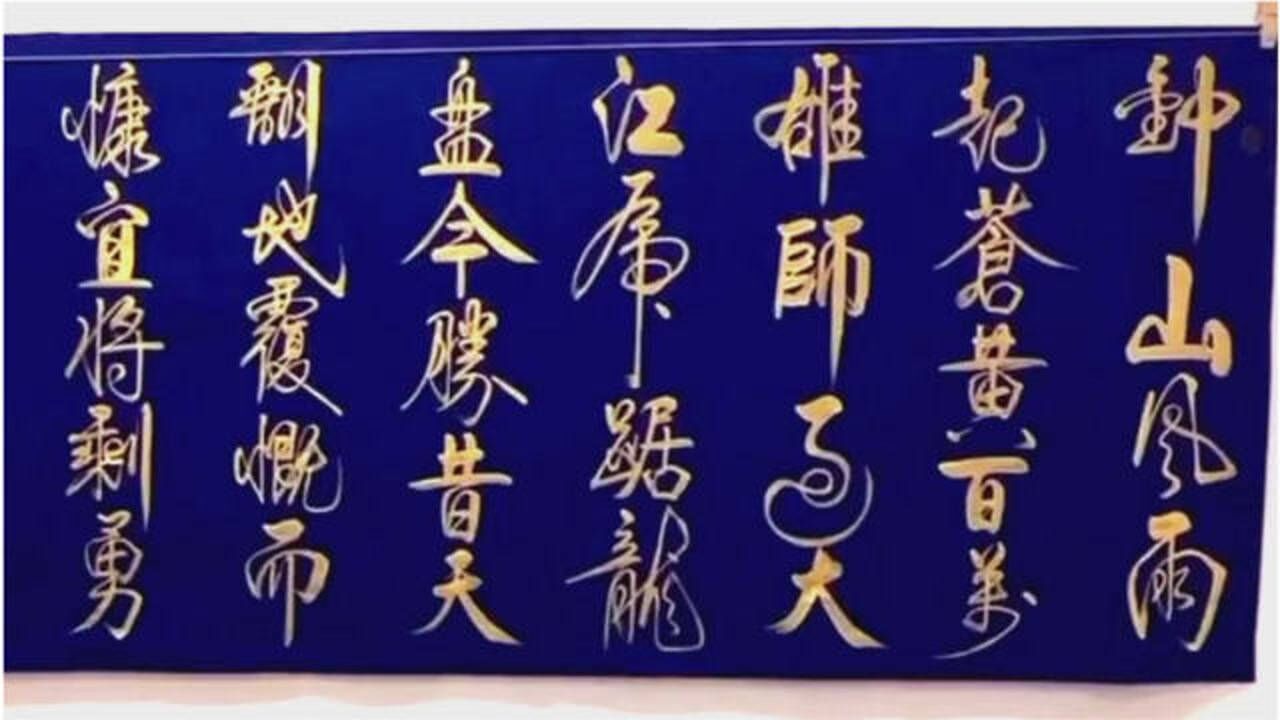 鍾山風雨
起蒼黃百萬
雄師過大
江虎踞龍
盘今勝昔天
翻地覆慨而
慷宜将剩勇